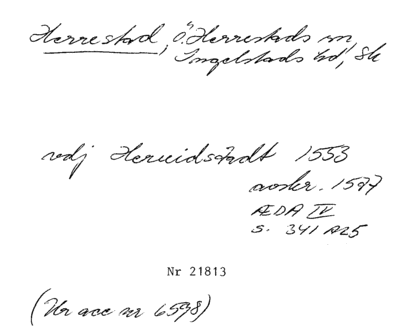 Herrestad, Ö. Herrestads sn
Ingelstads hd, Sk
vdj Herridstadt 1553
avskr. 1597
ÆDA IV
s. 341 A25
Nr 21813
(Ur acc nr 6598)